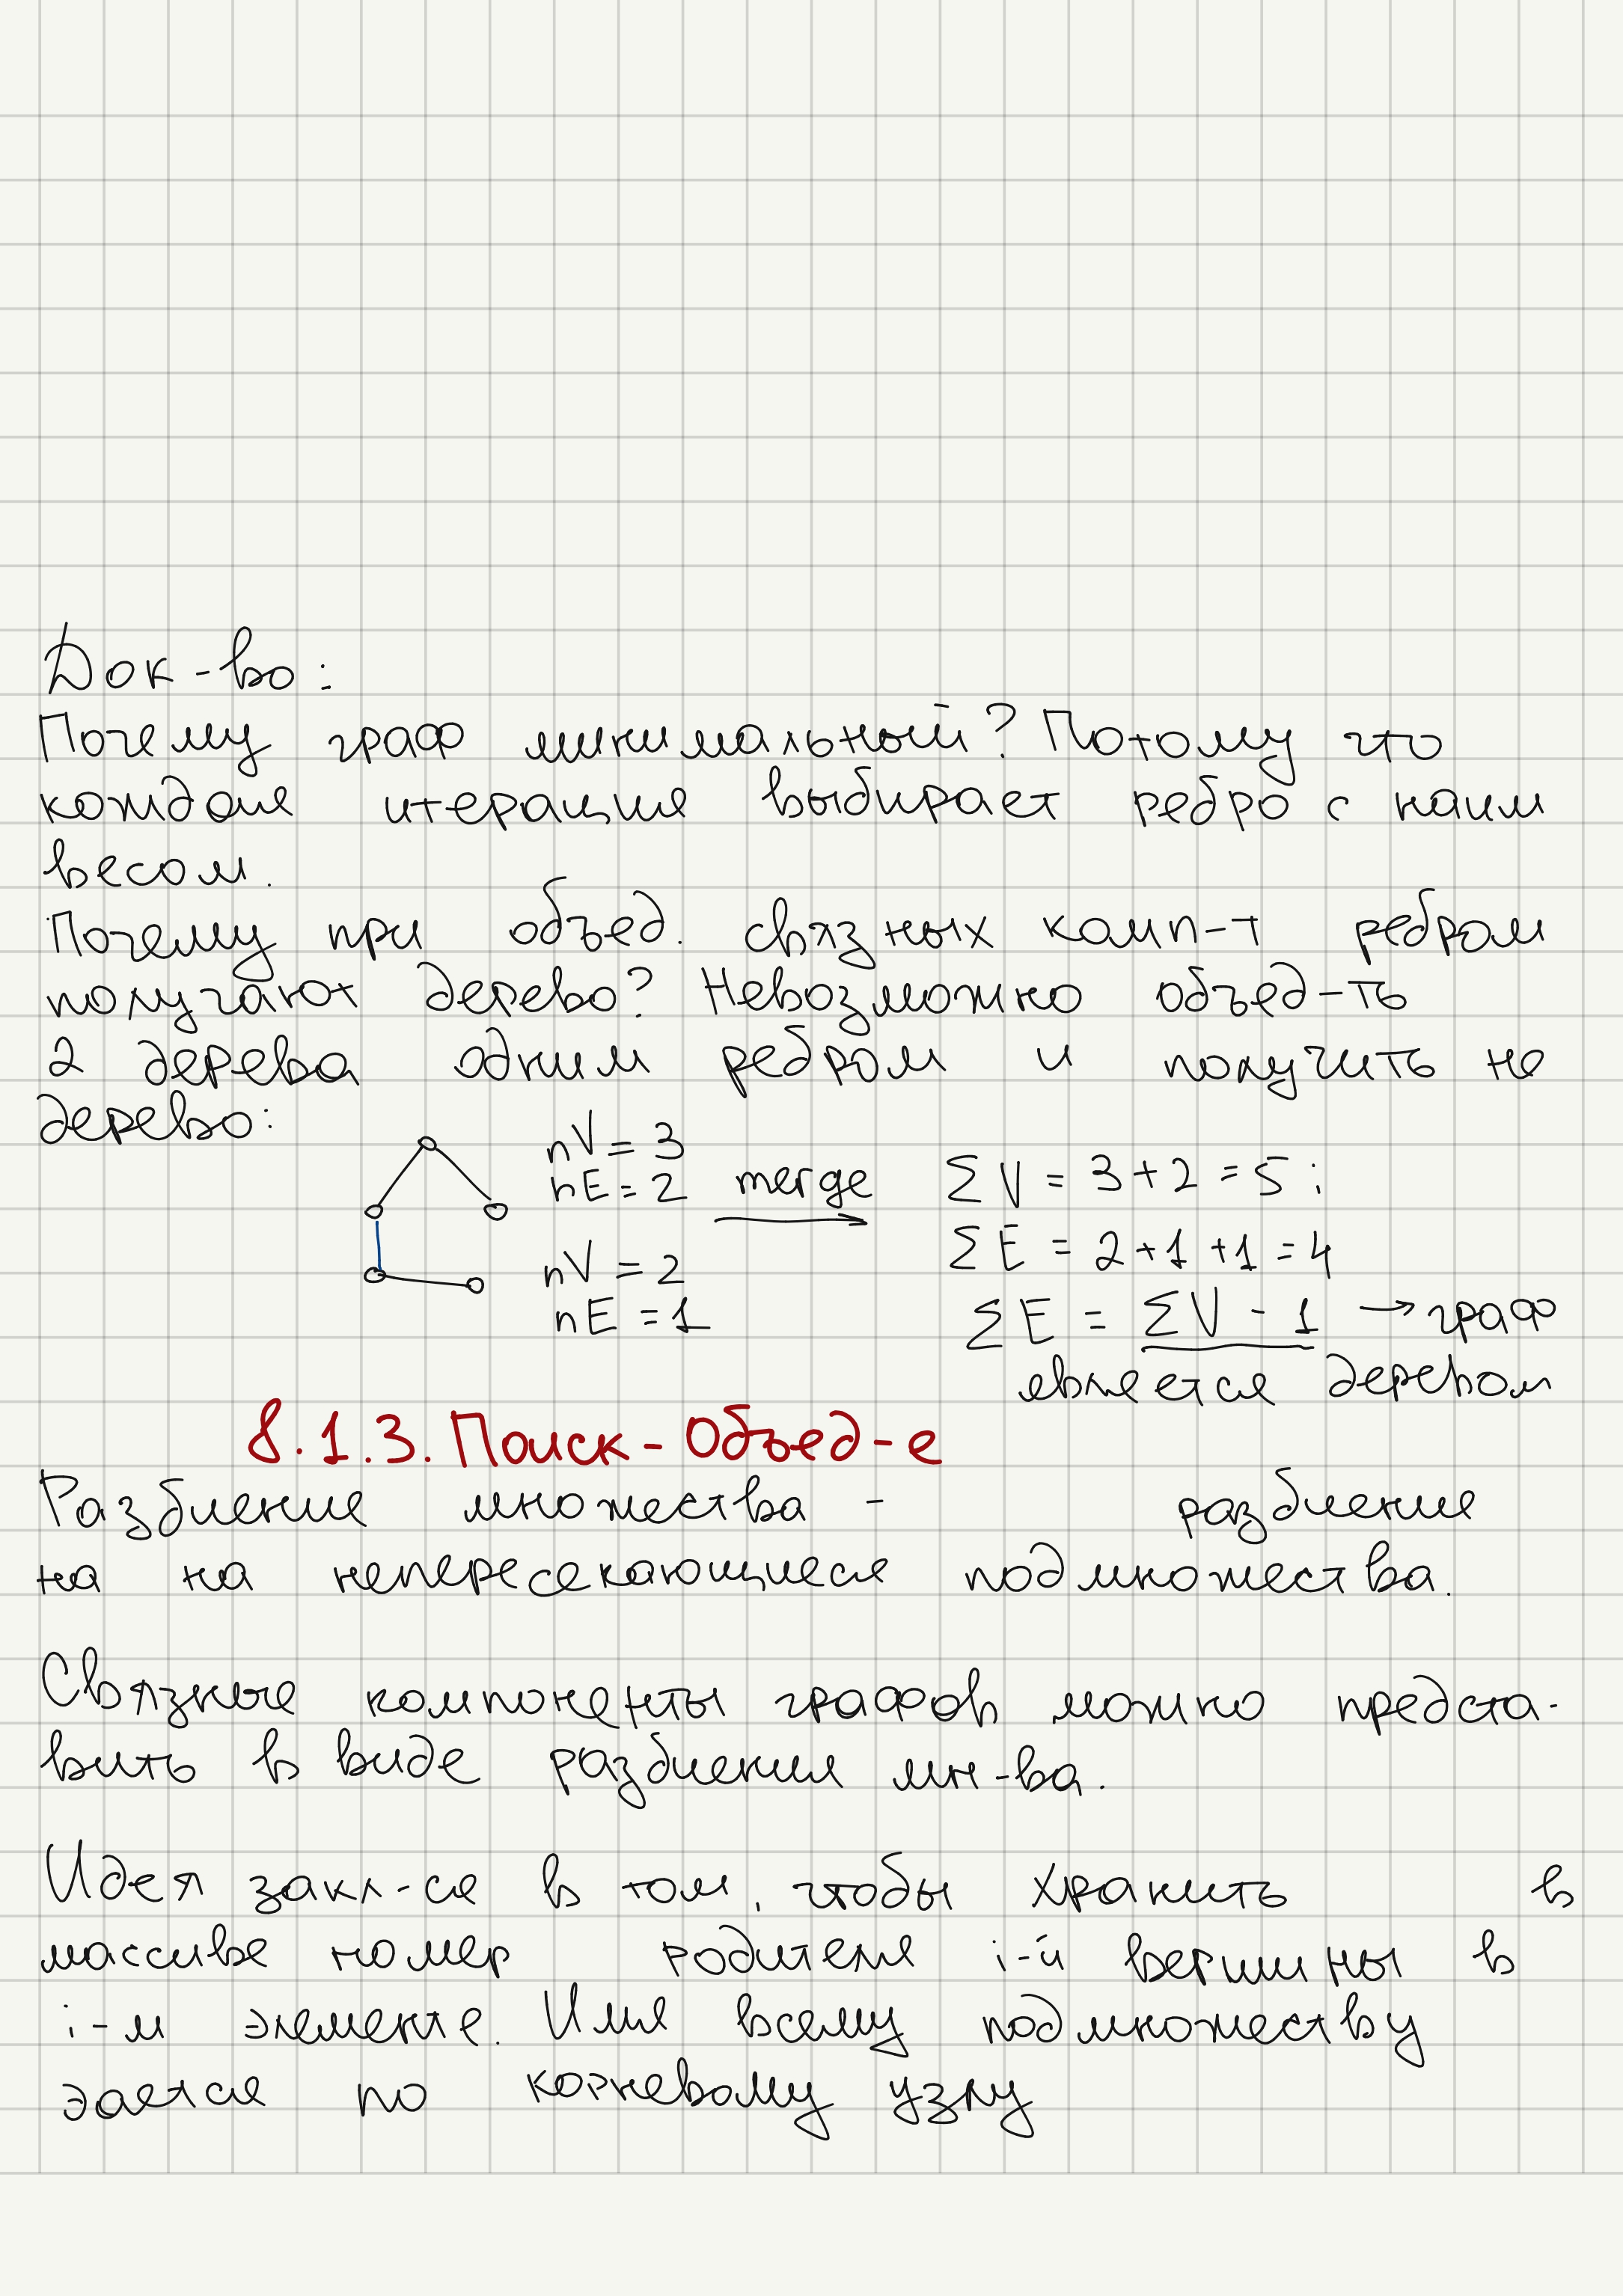 Док-во:
Почему граф минимальный? Потому что
каждая итерация выбирает ребро с наим
весом.
Почему при объед. связных комп-т ребром
получают дерево? Невозможно объед-ть
2 дерева одним ребром и получить не
дерево:
nV = 3
nE = 2
merge
nV = 2
nE = 1
ΣV = 3 + 2 = 5;
ΣE = 2 + 1 + 1 = 4
ΣE = ΣV - 1 → граф
является деревом
8.1.3. Поиск - Объед-е
Разбиение множества - разбиение
на на непересекающиеся подмножества.
Связные компоненты графов можно предста-
вить в виде разбиения мн-ва.
Идея закл-ся в том, чтобы хранить в
массиве номер родителя i-й вершины в
i-м элементе. Имя всему подмножеству
по корневому узлу